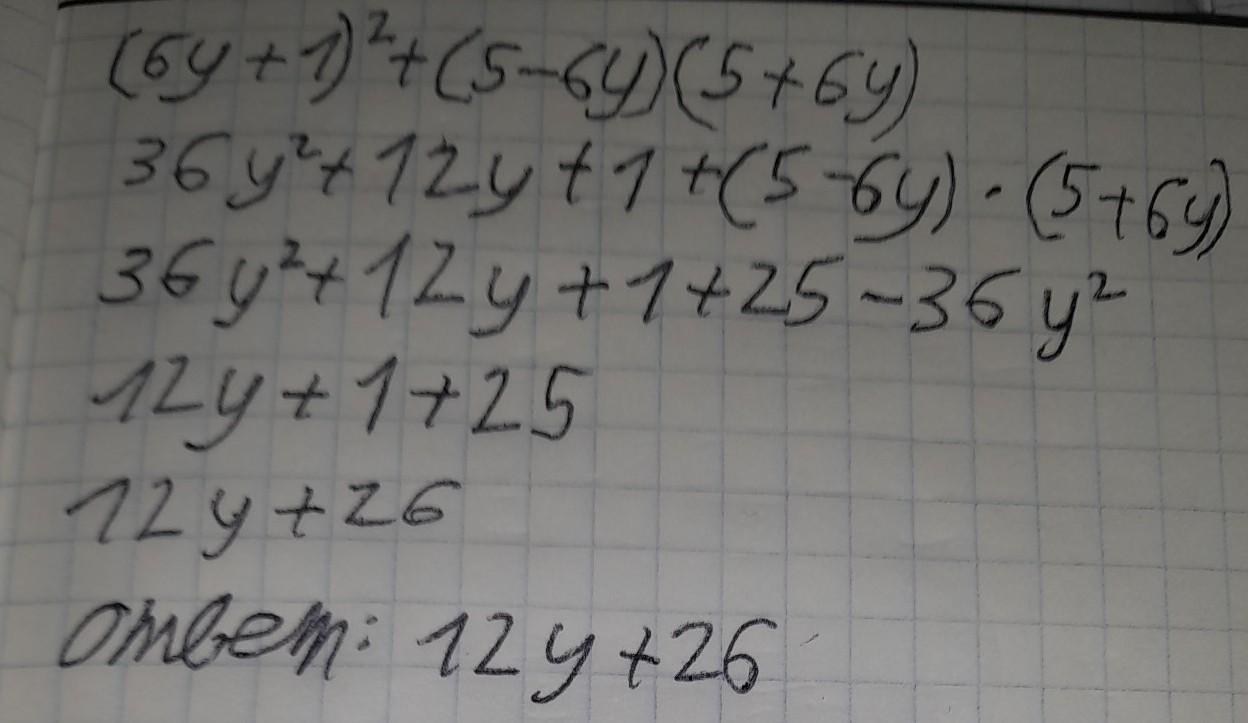 (6y+1)²+(5-6y)(5+6y)
36y²+12y+1+(5-6y)·(5+6y)
36y²+12y+1+25-36y²
12y+1+25
12y+26
ответ: 12y+26